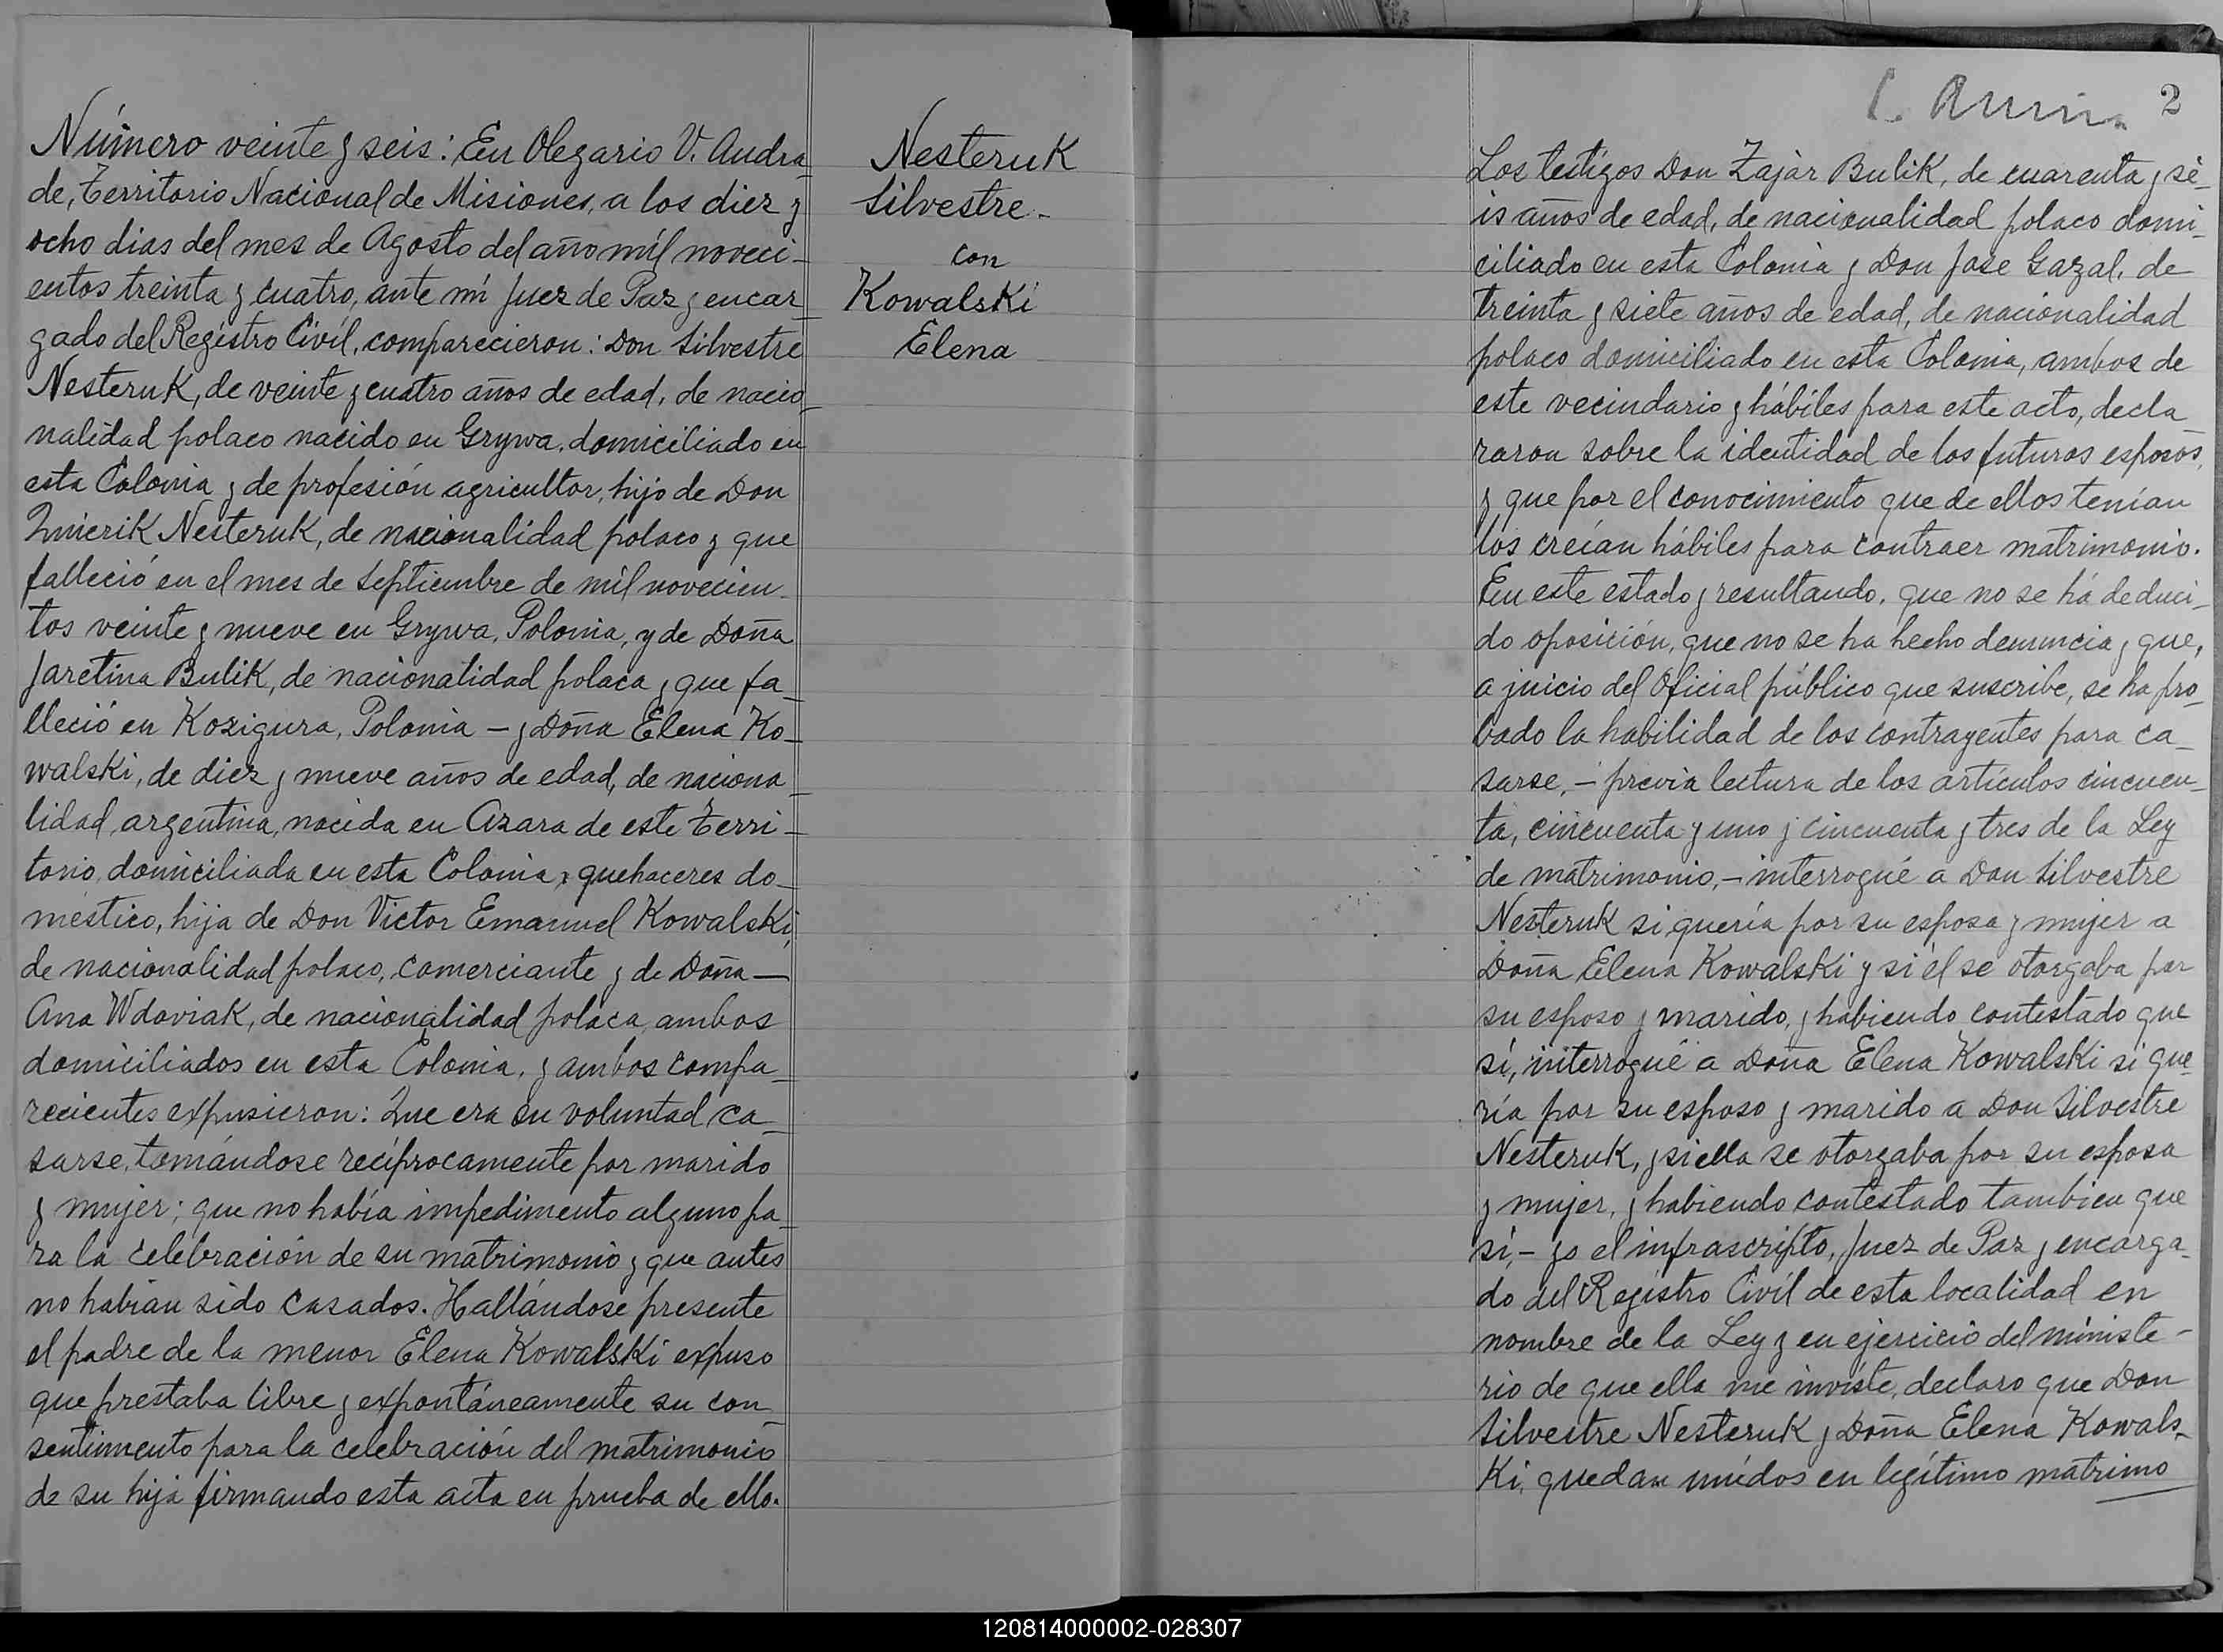 Número veinte y seis: En Olegario V. Andra-
de, Territorio Nacional de Misiones, a los diez y
ocho dias del mes de Agosto del año mil noveci-
entos treinta y cuatro, ante mí Juez de Paz y encar-
gado del Registro Civil, comparecieron: Don Silvestre
Nesteruk, de veinte y cuatro años de edad, de nacio-
nalidad polaco nacido en Grywa, domiciliado en
esta Colonia y de profesión agricultor, hijo de Don
Nesteruk, de nacionalidad polaco y que
falleció en el mes de Septiembre de mil novecien-
tos veinte y nueve en Grywa, Polonia, y de Doña
Jaretina Bulik, de nacionalidad polaca y que fa-
lleció en Kozigura, Polonia – y Doña Elena Ko-
walski, de diez y nueve años de edad, de naciona-
lidad argentina, nacida en Azara de este Terri-
torio, domiciliada en esta Colonia, quehaceres do-
mestico, hija de Don Victor Emanuel Kowalski,
de nacionalidad polaco, comerciante y de Doña —
Ana Wdoviak, de nacionalidad polaca, ambos
domiciliados en esta Colonia, y ambos compa-
recientes expusieron: Que era su voluntad ca-
sarse, tomándose recíprocamente por marido
y mujer; que no había impedimento alguno pa-
ra la celebración de su matrimonio y que antes
no habian sido casados. Hallándose presente
el padre de la menor Elena Kowalski expuso
que prestaba libre y expontáneamente su con-
sentimento para la celebración del matrimonio
de su hija firmando esta acta en prueba de ello.
Nesteruk
Silvestre.-
con
Kowalski
Elena
2
Los testigos Don Zajar Bulik, de cuarenta y se-
is años de edad, de nacionalidad polaco domi-
ciliado en esta Colonia y Don Jose Gazal, de
treinta y siete años de edad, de nacionalidad
polaco domiciliado en esta Colonia, ambos de
este vecindario y hábiles para este acto, decla-
raron sobre la identidad de los futuros esposos,
y que por el conocimiento que de ellos tenían
los creían hábiles para contraer matrimonio.
En este estado y resultando, que no se há deduci-
do oposición, que no se ha hecho denuncia y que,
a juicio del Oficial público que suscribe, se ha pro-
bado la habilidad de los contrayentes para ca-
sarse, – previa lectura de los artículos cincuen-
ta, cincuenta y uno y cincuenta y tres de la Ley
de matrimonio, – interrogué a Don Silvestre
Nesteruk si quería por su esposa y mujer a
Doña Elena Kowalski y si él se otorgaba por
su esposo y marido, y habiendo contestado que
sí, interrogué a Doña Elena Kowalski si que-
ría por su esposo y marido a Don Silvestre
Nesteruk, y si ella se otorgaba por su esposa
y mujer, y habiendo contestado tambien que
sí, – yo el infrascripto, Juez de Paz y encarga-
do del Registro Civíl de esta localidad en
nombre de la Ley y en ejercicio del ministe-
rio de que ella me inviste, declaro que Don
Silvestre Nesteruk y Doña Elena Kowals-
Ki, quedan unidos en legítimo matrimo
120814000002-028307